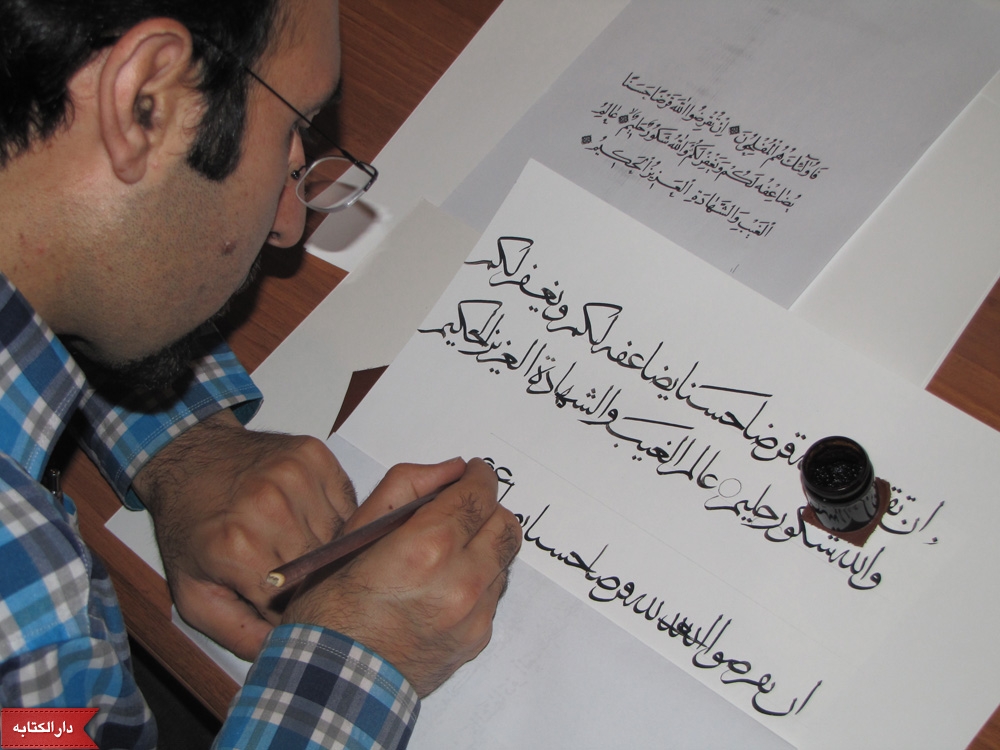 فَأُولٰئِكَ هُمُ الْمُفْلِحُونَ إِنْ تُقْرِضُوا اللَّهَ قَرْضًا حَسَنًا
يُضَاعِفْهُ لَكُمْ وَيَغْفِرْ لَكُمْ وَاللَّهُ شَكُورٌ حَلِيمٌ عَالِمُ
الْغَيْبِ وَالشَّهَادَةِ الْعَزِيزُ الْحَكِيمُ
إن قرضا حسنا يضاعفه لكم ويغفر لكم
والله شكور حليم عالم الغيب والشهادة العزيز الحكيم
ان يقرضوا الله قرضا حسنا
دارالكتابه